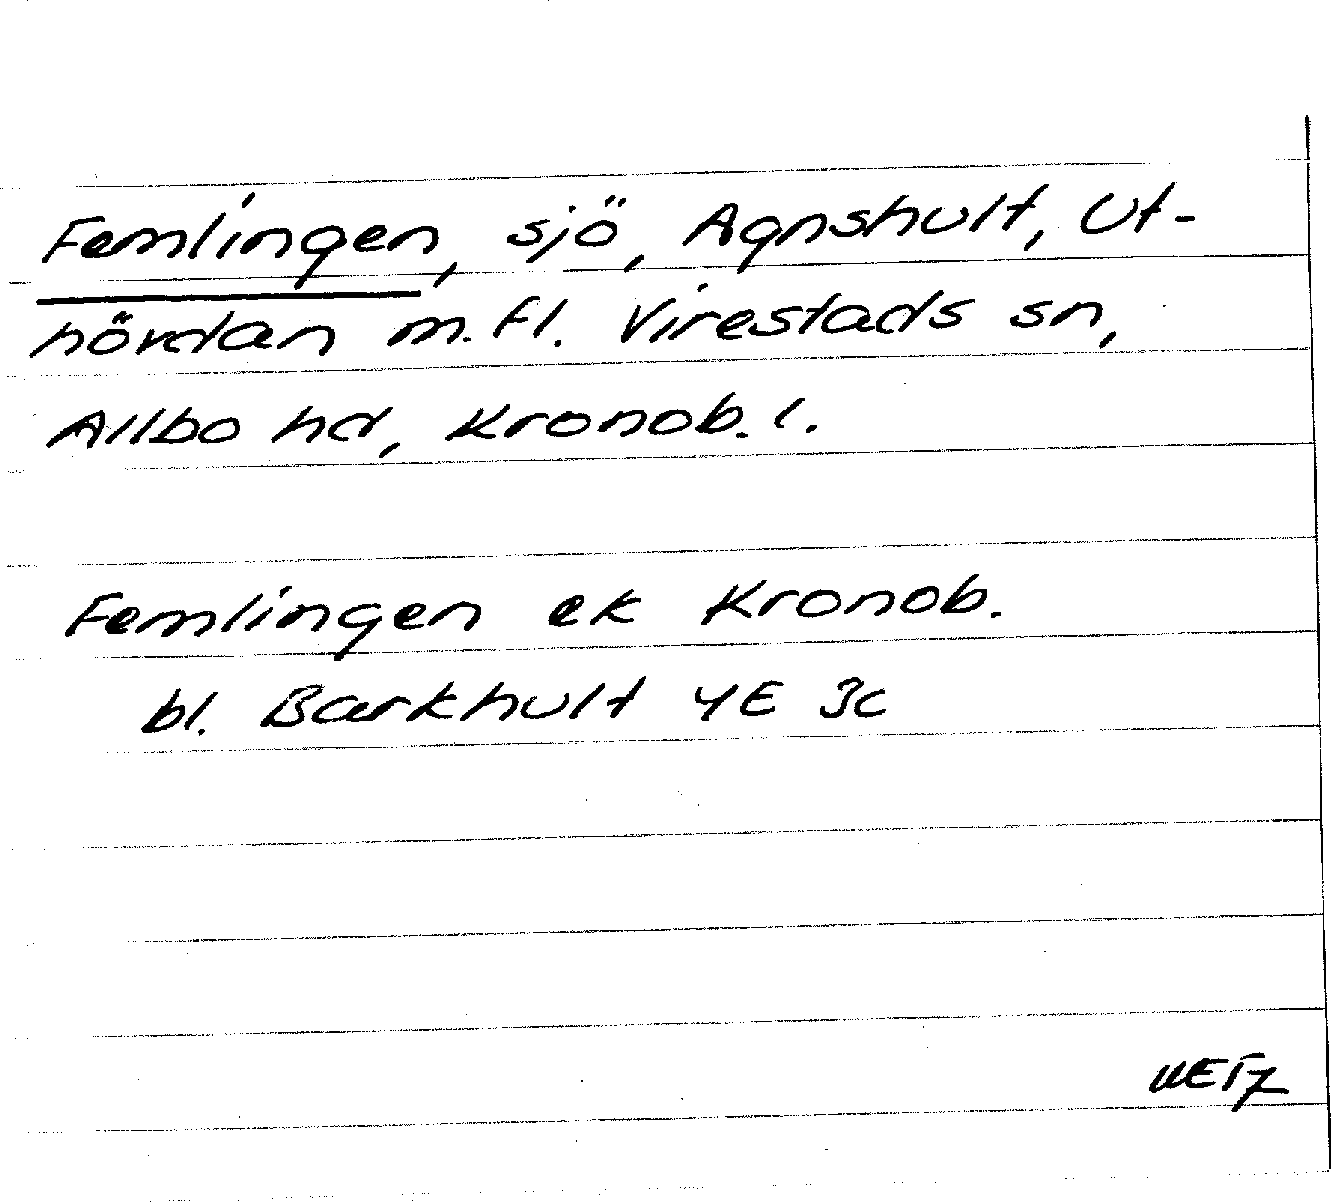 Femlingen, sjö, Agnshult, Ut-
hövdan m.fl. Virestads sn,
Allbo hd, Kronob. l.
Femlingen ek Kronob.
bl. Barkhult 4E 3c
WETZ